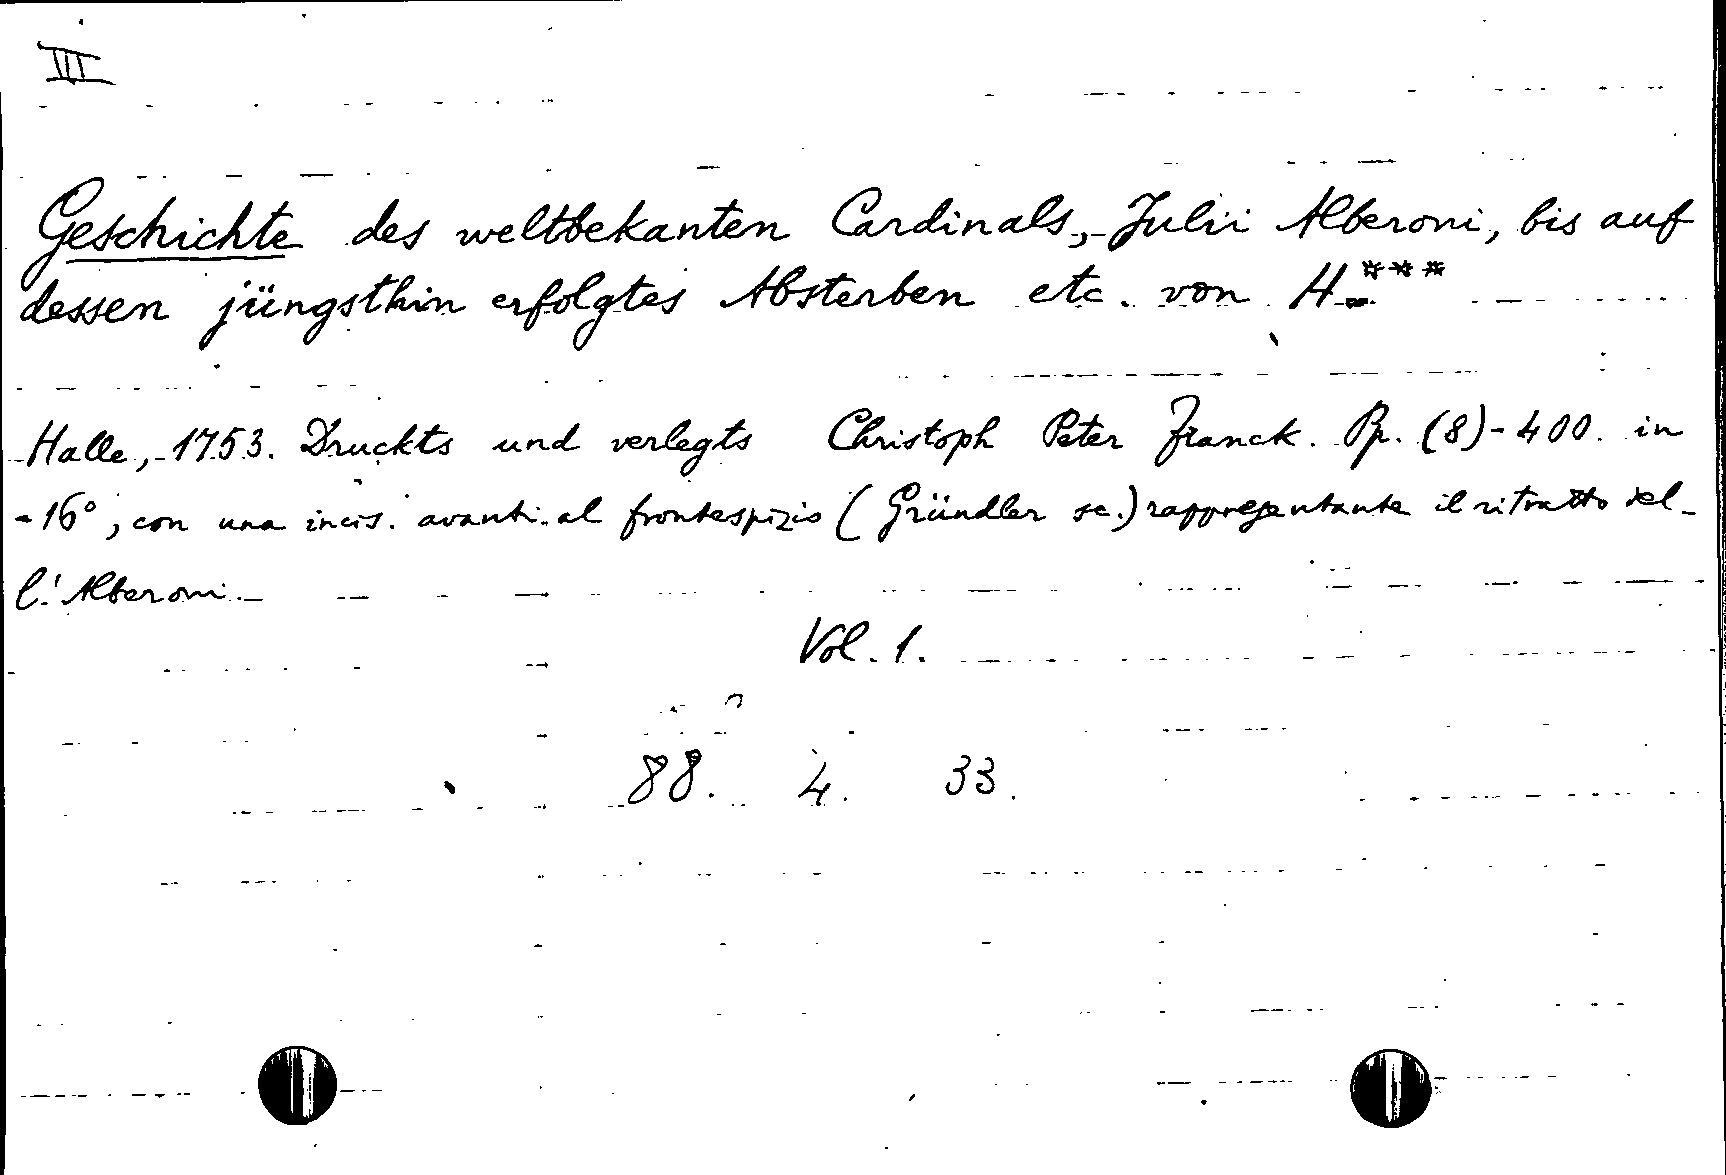 III
Geschichte des weltbekanten Cardinals, Julii Alberoni, bis auf
dessen jüngsthin erfolgtes Absterben etc. von H.***
Halle, 1753. Druckts und verlegts Christoph Peter Franck. Pp. (8)-400. in
-16°, con una incis. avanti al frontespizio (Gründler sc.) rappresentante il ritratto del-
l'Alberoni.
Vol. 1.
88. 4. 33.